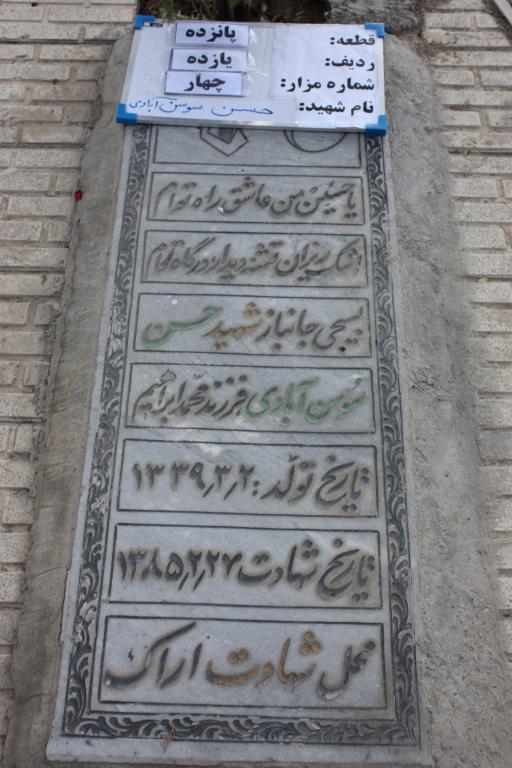 قطعه: پانزده
ردیف: یازده
شماره مزار: چهار
نام شهید: حسن سوسن آبادی
یا حسین من عاشق راه توام
اشک ریزان تشنه دیدار درگاه توام
بسیجی جانباز شهید حسن
سوسن آبادی فرزند محمد ابراهیم
تاریخ تولد: ۱۳۳۹٫۳٫۲
تاریخ شهادت ۱۳۸۵٫۲٫۲۷
محل شهادت اراک